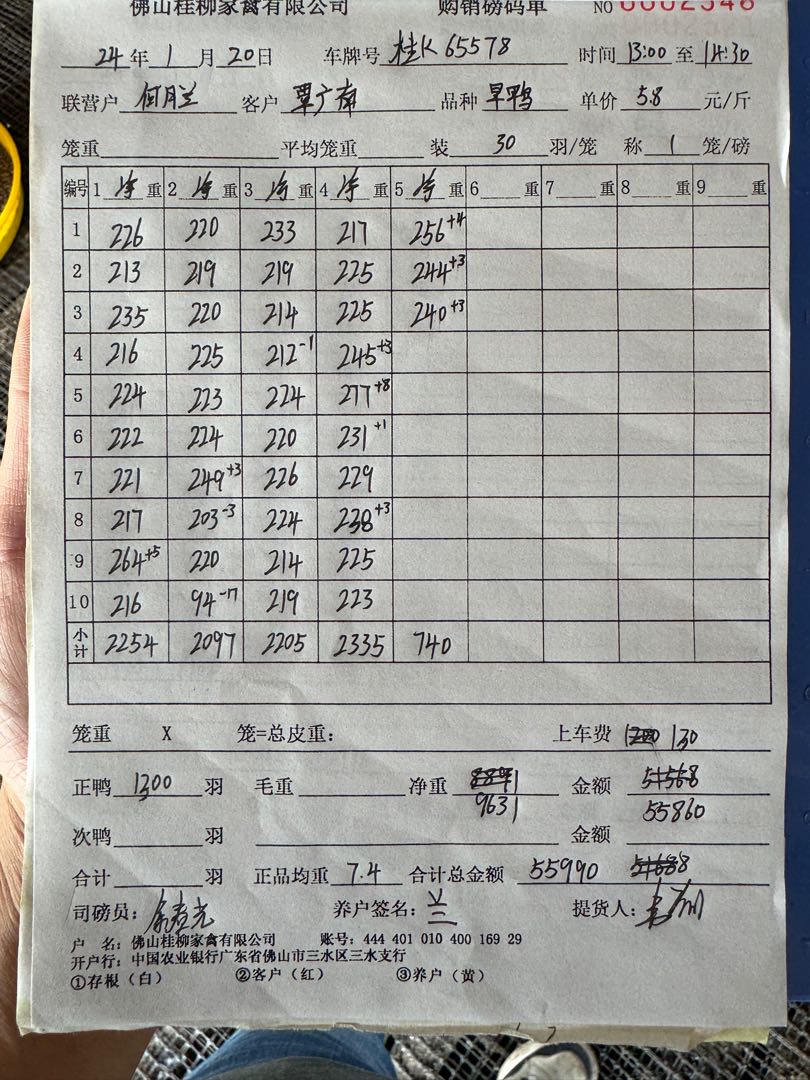 佛山桂柳家禽有限公司 购销磅码单 NO 0002346
24年1月20日 车牌号 桂K65578 时间 13:00 至 14:30
联营户 何月兰 客户 覃广南 品种 旱鸭 单价 5.8 元/斤
笼重 平均笼重 装 30 羽/笼 称 1 笼/磅
编号 1 净重 2 净重 3 净重 4 净重 5 净重 6 重 7 重 8 重 9 重
1 226 220 233 217 256+4
2 213 219 219 225 244+3
3 235 220 214 225 240+3
4 216 225 212-1 245+3
5 224 223 224 277+8
6 222 224 220 231+1
7 221 249+3 226 229
8 217 203-3 224 238+3
9 264+5 220 214 225
10 216 94-17 219 223
小计 2254 2097 2205 2335 740
笼重 X 笼=总皮重: 上车费 130
正鸭 1300 羽 毛重 净重 9631 金额 51568 55860
次鸭 羽 金额
合计 羽 正品均重 7.4 合计总金额 55990
司磅员: 养户签名: 提货人:
户 名: 佛山桂柳家禽有限公司 账号: 444 401 010 400 169 29
开户行: 中国农业银行广东省佛山市三水区三水支行
①存根(白) ②客户(红) ③养户(黄)